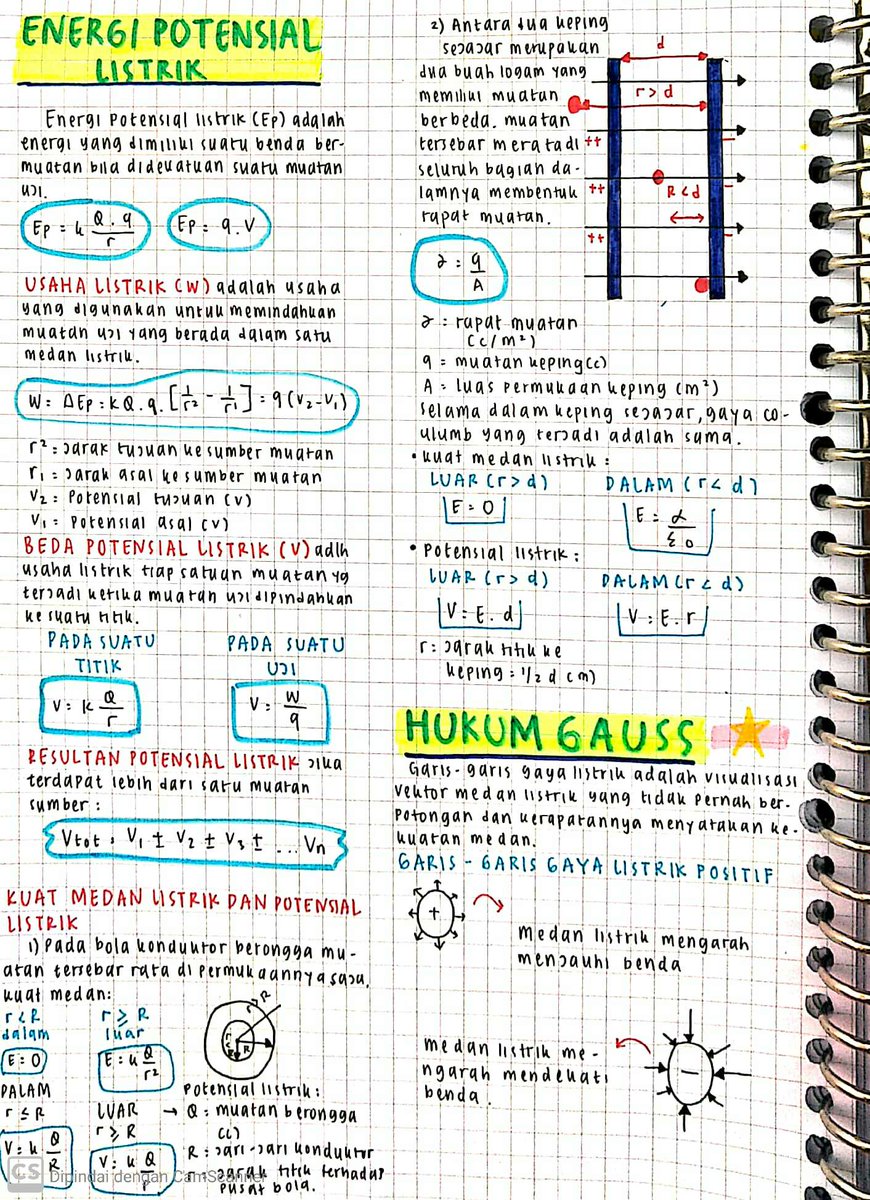 ENERGI POTENSIAL
LISTRIK
Energi Potensial listrik (Ep) adalah
energi yang dimiliki suatu benda ber-
muatan bila didekatkan suatu muatan
uji.
Ep = k Q . q / r
Ep = q . V
USAHA LISTRIK (W) adalah usaha
yang digunakan untuk memindahkan
muatan uji yang berada dalam satu
medan listrik.
W = ΔEp = k Q . q . [1/r2 - 1/r1] = q (V2 - V1)
r2 : jarak tujuan ke sumber muatan
r1 = jarak asal ke sumber muatan
V2 = Potensial tujuan (V)
V1 = Potensial asal (V)
BEDA POTENSIAL LISTRIK (V) adlh
usaha listrik tiap satuan muatan yg
terjadi ketika muatan uji dipindahkan
ke suatu titik.
PADA SUATU
TITIK
V = k Q / r
PADA SUATU
UJI
V = W / q
RESULTAN POTENSIAL LISTRIK jika
terdapat lebih dari satu muatan
sumber :
Vtot = V1 ± V2 ± V3 ± ... Vn
KUAT MEDAN LISTRIK DAN POTENSIAL
LISTRIK
1) Pada bola konduktor berongga mu-
atan tersebar rata di permukaannya saja.
kuat medan:
r < R
dalam
E = 0
r ≥ R
luar
E = k Q / r²
r > R
r < R
R
DALAM
r ≤ R
V = k Q / R
LUAR
r ≥ R
V = k Q / r
Potensial listrik :
→ Q = muatan berongga
(C)
R = jari-jari konduktor
r = jarak titik terhadap
pusat bola.
CS Dipindai dengan CamScanner
2) Antara dua keping
sejajar merupakan
dua buah logam yang
memiliki muatan
berbeda. muatan
tersebar merata di
seluruh bagian da-
lamnya membentuk
rapat muatan.
d
r > d
++
++
R < d
++
∂ = q / A
∂ = rapat muatan
(C/m²)
q = muatan keping (C)
A = luas permukaan keping (m²)
selama dalam keping sejajar, gaya co-
ulumb yang terjadi adalah sama.
• kuat medan listrik :
LUAR (r > d)
E = 0
DALAM (r < d)
E = α / ε0
• Potensial listrik :
LUAR (r > d)
V = E . d
DALAM (r < d)
V = E . r
r = jarak titik ke
keping = 1/2 d (m)
HUKUM GAUSS
Garis-garis gaya listrik adalah visualisasi
vektor medan listrik yang tidak pernah ber-
potongan dan kerapatannya menyatakan ke-
kuatan medan.
GARIS - GARIS GAYA LISTRIK POSITIF
+
medan listrik mengarah
menjauhi benda
medan listrik me-
ngarah mendekati
benda.
−